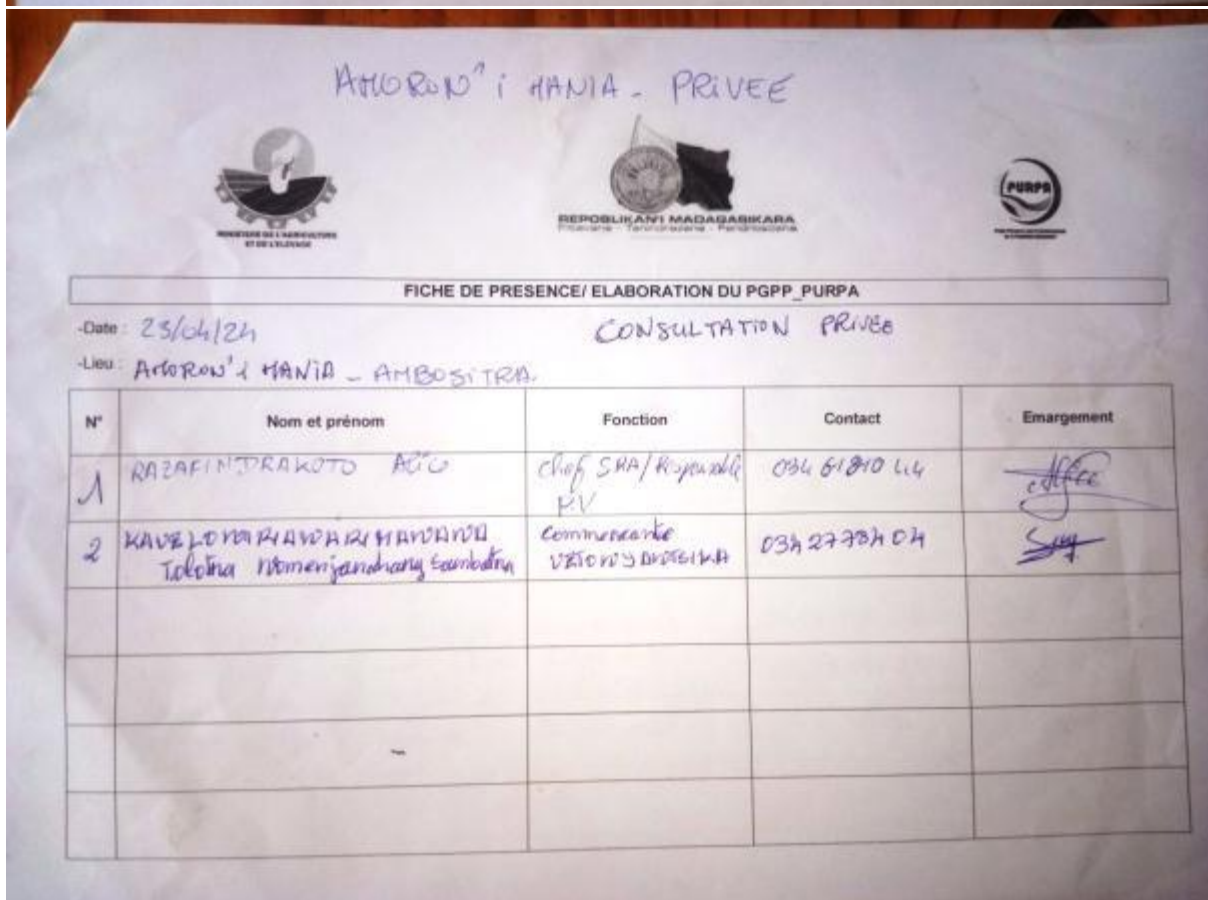 AMORON'i MANIA - PRIVEE
MINISTERE DE L'AGRICULTURE
ET DE L'ELEVAGE
REPOBLIKAN'I MADAGASIKARA
Fitiavana - Tanindrazana - Fandrosoana
PURPA
FICHE DE PRESENCE/ ELABORATION DU PGPP_PURPA
-Date : 23/04/24
CONSULTATION PRIVEE
-Lieu : AMORON'i MANIA - AMBOSITRA.
N° Nom et prénom Fonction Contact Emargement
1 RAZAFINDRAKOTO Chef SRA/Responsable
2 Commercante
Tolotra 034 27784 04